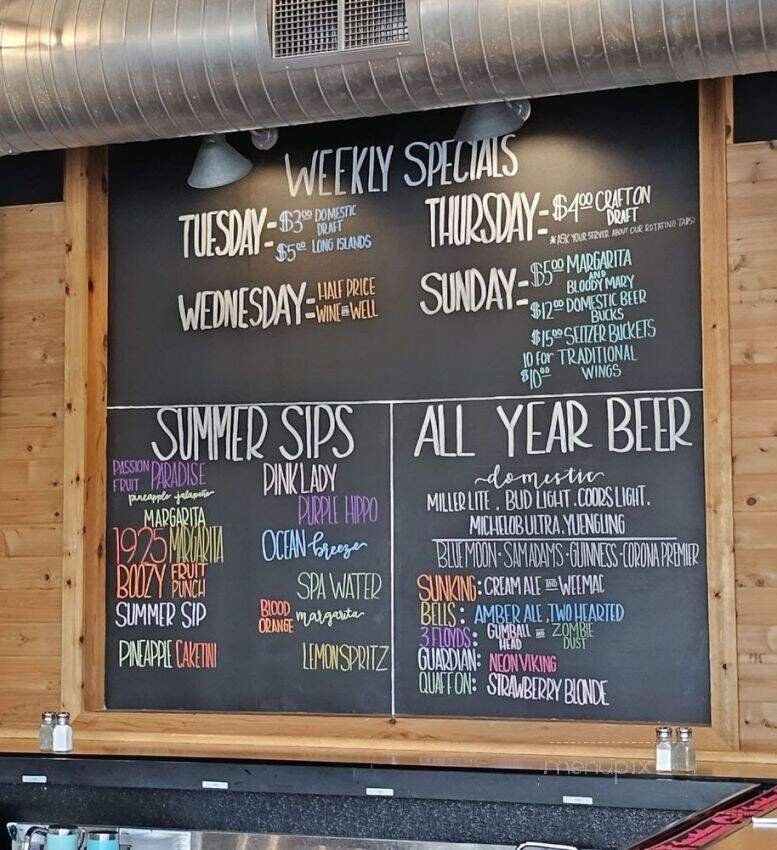 WEEKLY SPECIALS
TUESDAY- $3⁰⁰ DOMESTIC
DRAFT
$5⁰⁰ LONG ISLANDS
WEDNESDAY= HALF PRICE
WINE AND WELL
THURSDAY- $4⁰⁰ CRAFT ON
DRAFT
*ASK YOUR SERVER ABOUT OUR ROTATING TAPS!
SUNDAY- $5⁰⁰ MARGARITA
AND
BLOODY MARY
$12⁰⁰ DOMESTIC BEER
BUCKS
$15⁰⁰ SELTZER BUCKETS
10 FOR TRADITIONAL
$10⁰⁰ WINGS
SUMMER SIPS
PASSION
FRUIT PARADISE
pineapple-jalapeño
MARGARITA
1925 MARGARITA
BOOZY FRUIT
PUNCH
SUMMER SIP
PINEAPPLE CAKETINI
PINK LADY
PURPLE HIPPO
OCEAN breeze
SPA WATER
BLOOD
ORANGE margarita
LEMON SPRITZ
ALL YEAR BEER
~domestic~
MILLER LITE . BUD LIGHT . COORS LIGHT .
MICHELOB ULTRA . YUENGLING
BLUE MOON - SAM ADAMS - GUINNESS - CORONA PREMIER
SUNKING: CREAM ALE AND WEEMAC
BELLS: AMBER ALE, TWO HEARTED
3 FLOYDS: GUMBALL HEAD AND ZOMBIE DUST
GUARDIAN: NEON VIKING
QUAFF ON: STRAWBERRY BLONDE
menupix